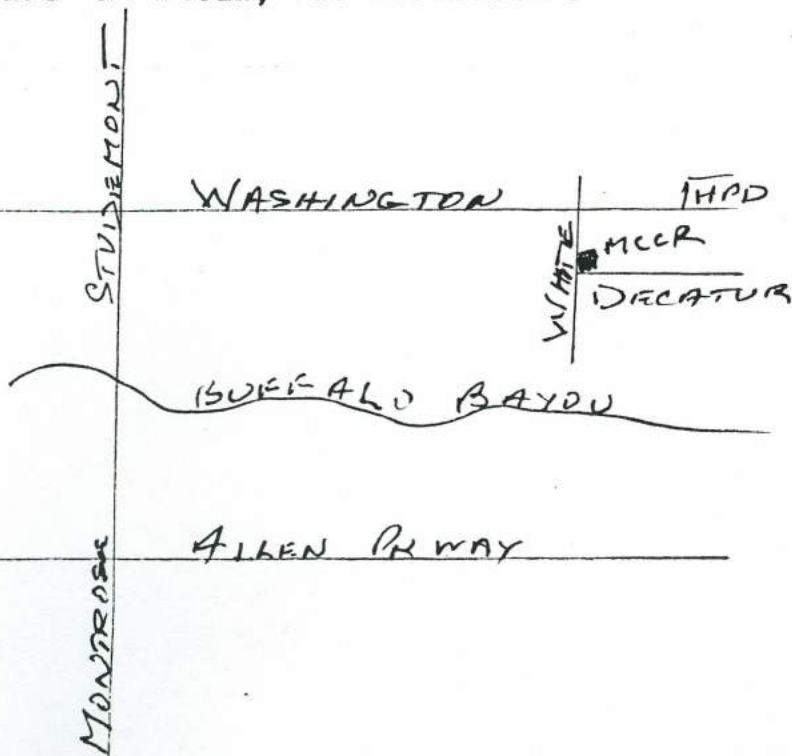 STUDEMONT
WASHINGTON
HPD
WHITE
MCCR
DECATUR
BUFFALO BAYOU
ALLEN PKWAY
MONTROSE